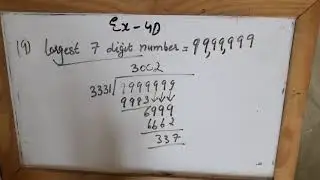 Ex-4D
(9) largest 7 digit number = 99,99,999
3002
3331 9999999
9983
6999
6662
337